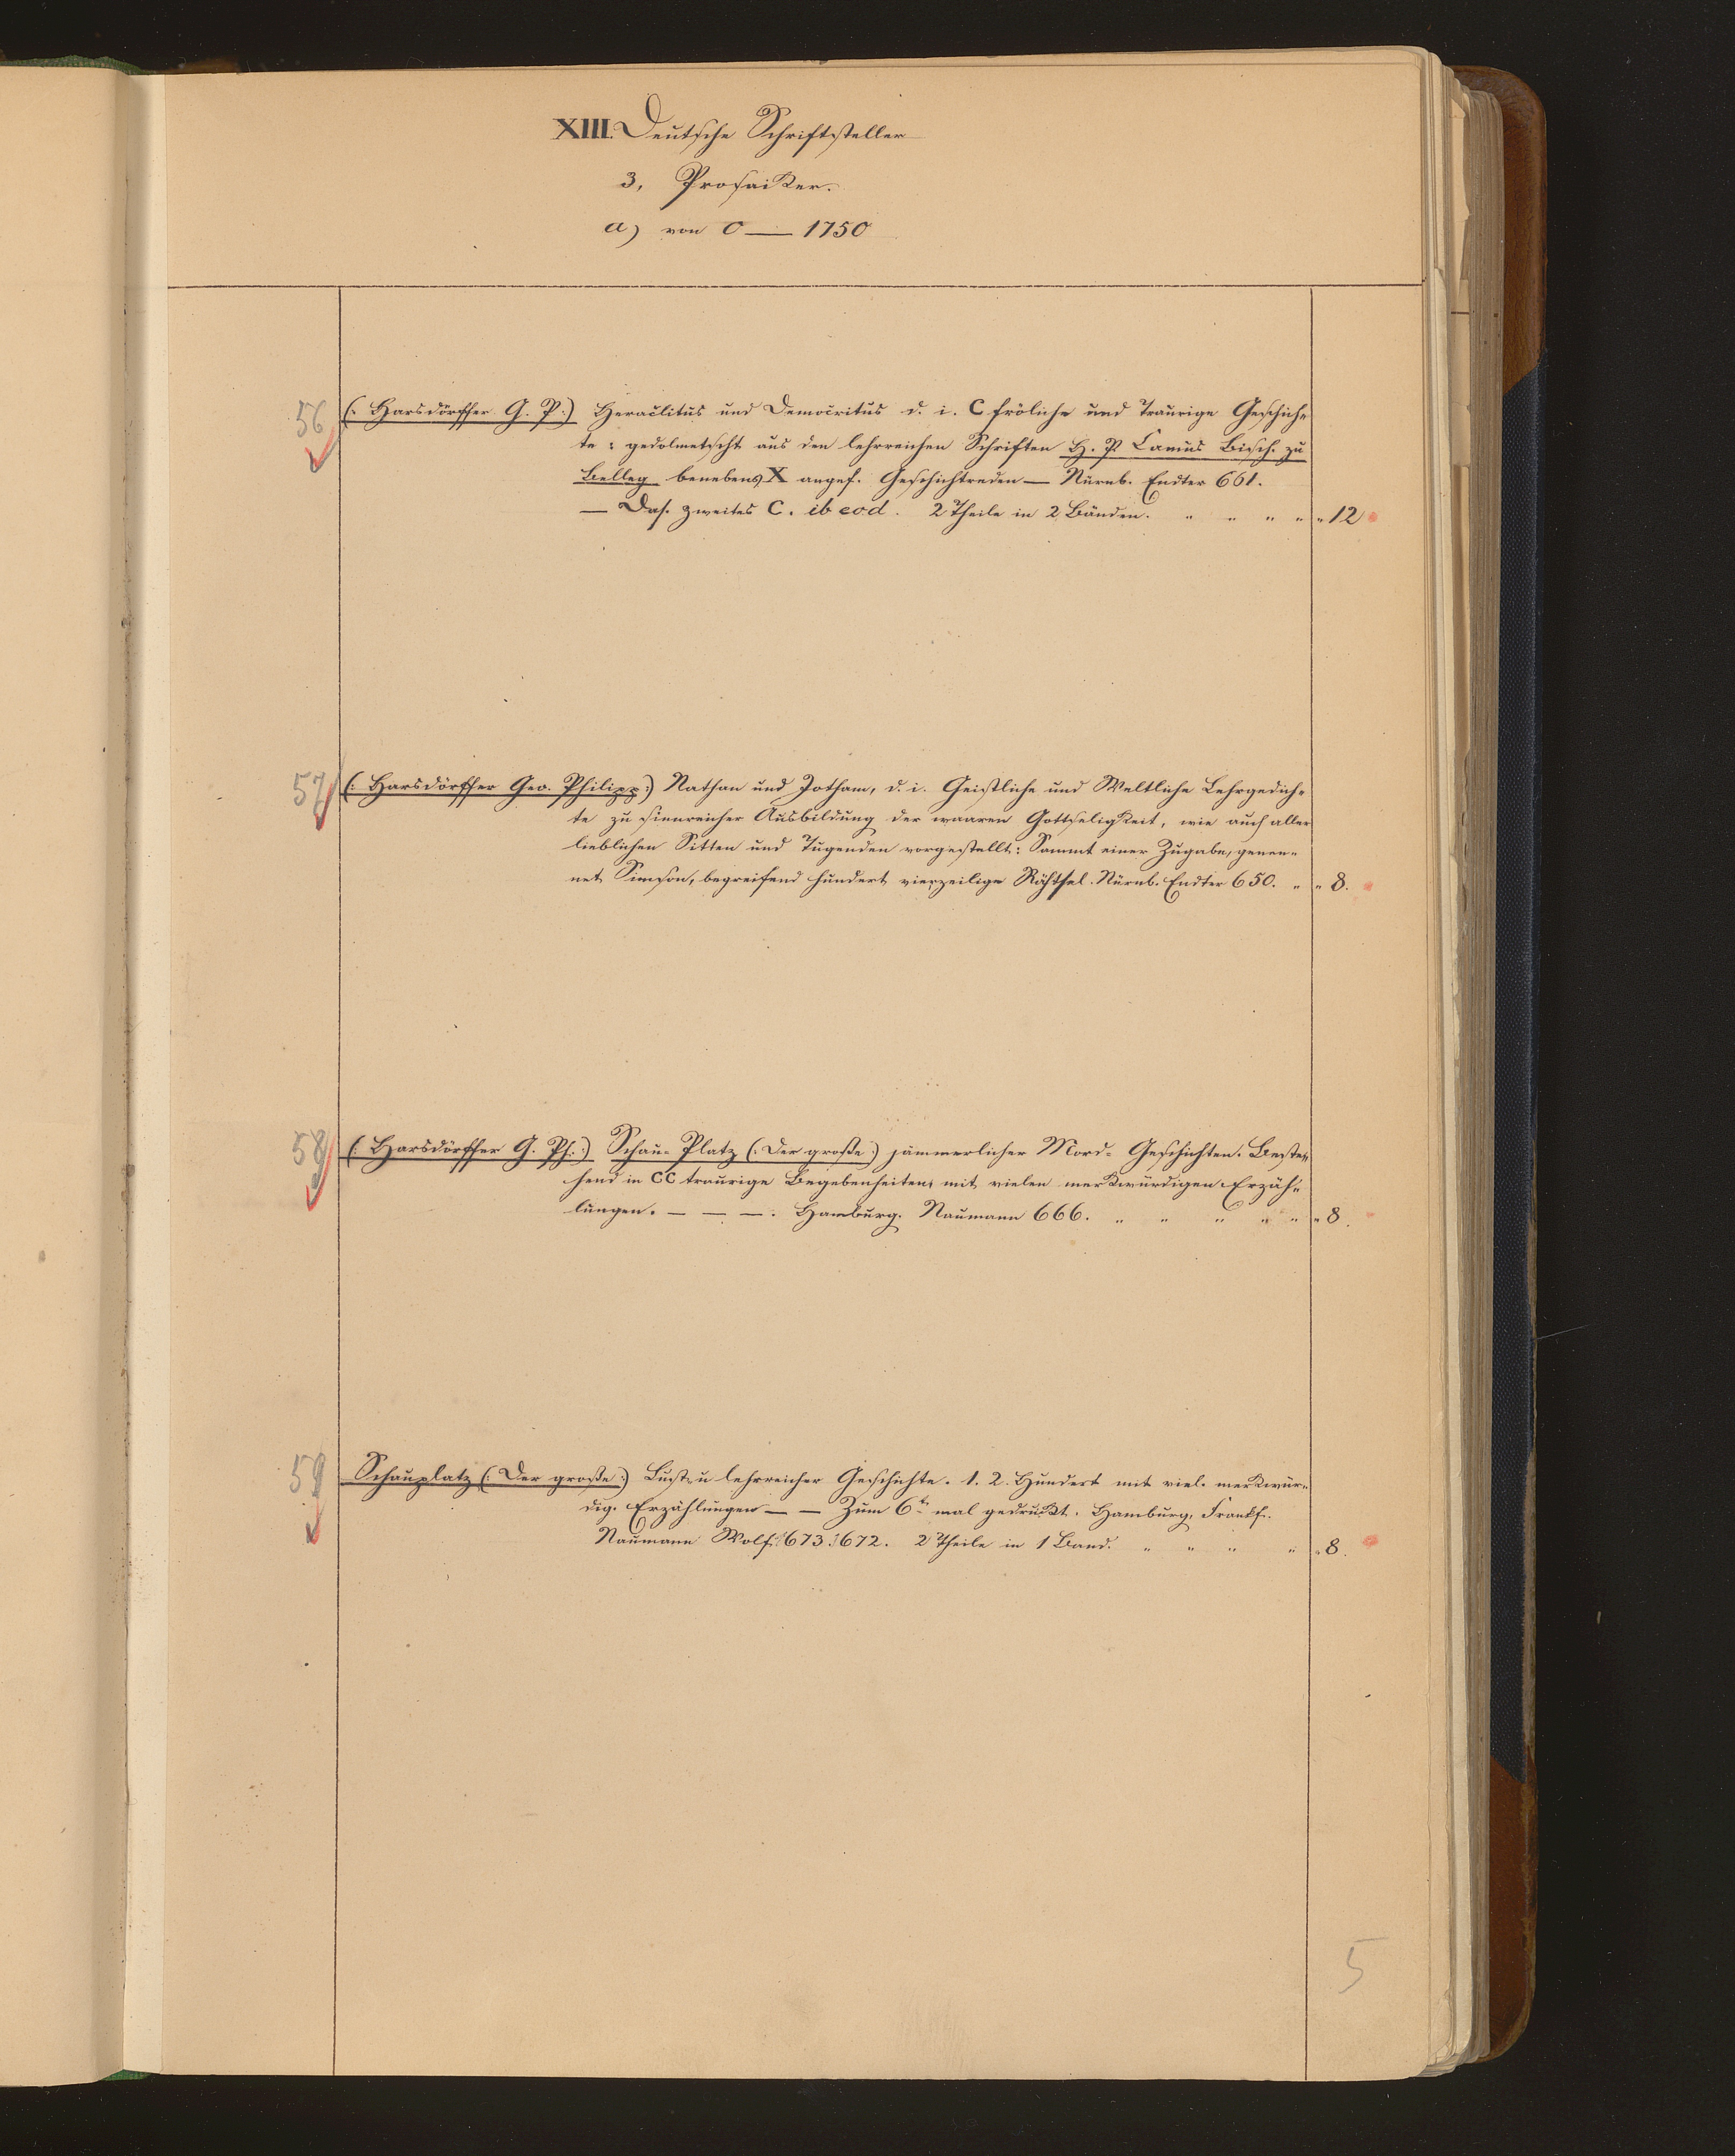 XIII. Deutsche Schriftsteller
3, Prosaiker.
a) von 0 — 1750
56 (: Harsdörffer G. P :) Heraclitus und Democritus d. i. C fröliche und Traurige Geschich-
te : gedolmetscht aus den lehrreichen Schriften H. P. Camus Bisch. zu
Belley benebens X angef. Geschichtreden — Nürnb. Endter 661.
— Das. zweites C. ib eod. 2 Theile in 2 Bänden. " " " " " 12
57 (: Harsdörffer Geo. Philipp :) Nathan und Jotham, d. i. Geistliche und Weltliche Lehrgedich-
te zu sinnreicher Ausbildung der waaren Gottseligkeit, wie auch aller
lieblichen Sitten und Tugenden vorgestellt : Sammt einer Zugabe, genen-
net Simson, begreifend hundert vierzeilige Rähtsel. Nürnb. Endter 650. " " 8.
58 (: Harsdörffer G. Ph. :) Schau-Platz (: Der große :) jämmerlicher Mord-Geschichten. Beste-
hend in CC traurige Begebenheiten, mit vielen merkwürdigen Erzäh-
lungen. — — —. Hamburg. Naumann 666. " " " " " " 8.
59 Schauplatz (: Der große :) Lust- u lehrreicher Geschichte. 1. 2. Hundert mit viel. merkwür-
dig. Erzählungen — — Zum 6tn mal gedruckt. Hamburg, Frankf.
Naumann Wolf. 673. 672. 2 Theile in 1 Band. " " " " " 8.
5